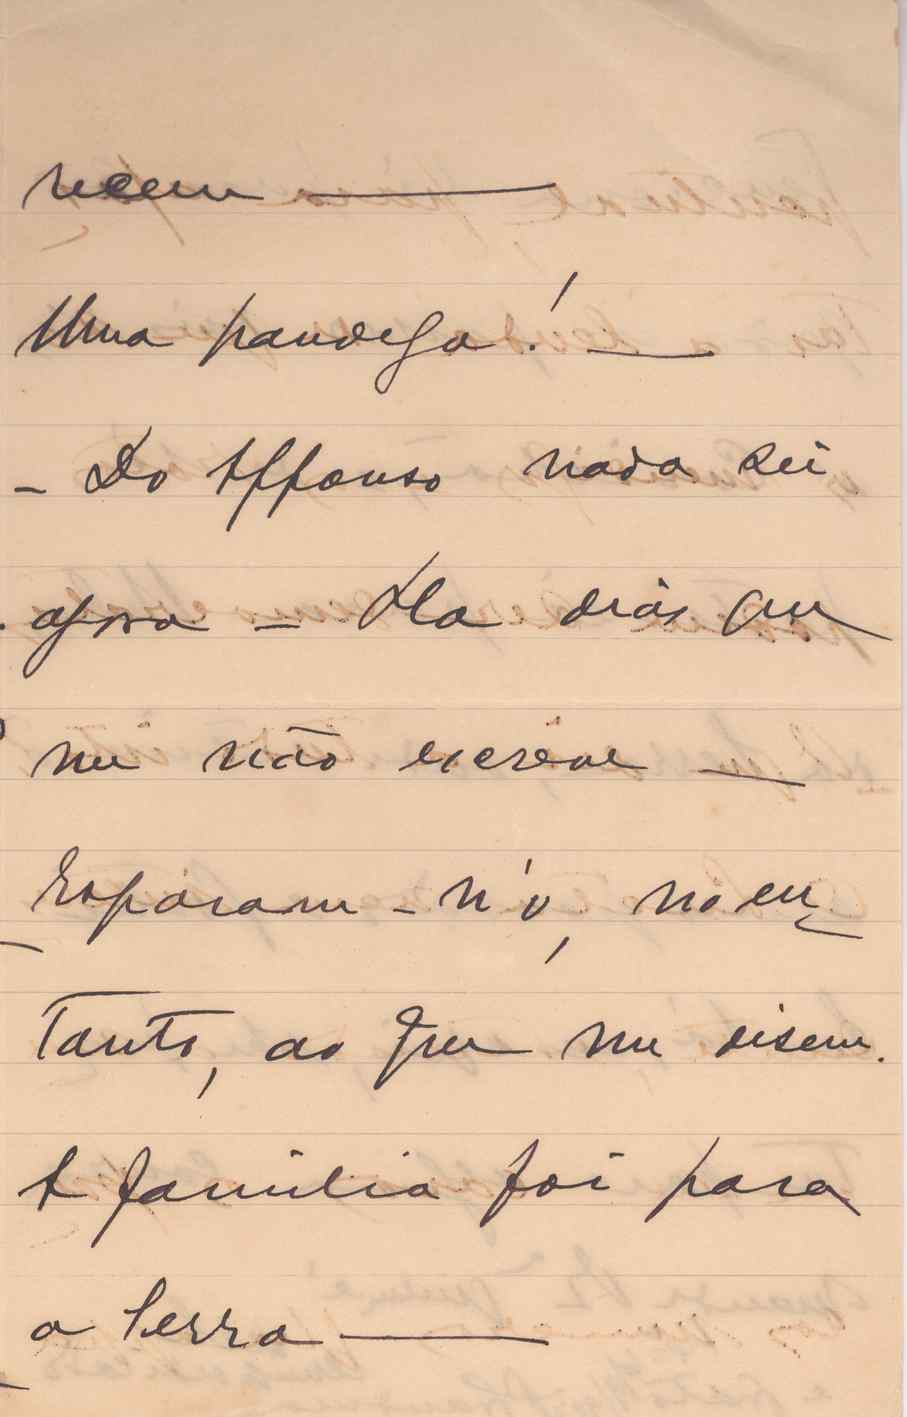 recem —
Uma pandega! —
- Do Affonso nada sei
agora - Ha dias que
me não escreve —
Esperam-n'o, no en-
tanto, ao que me disem.
A familia foi para
a Serra —